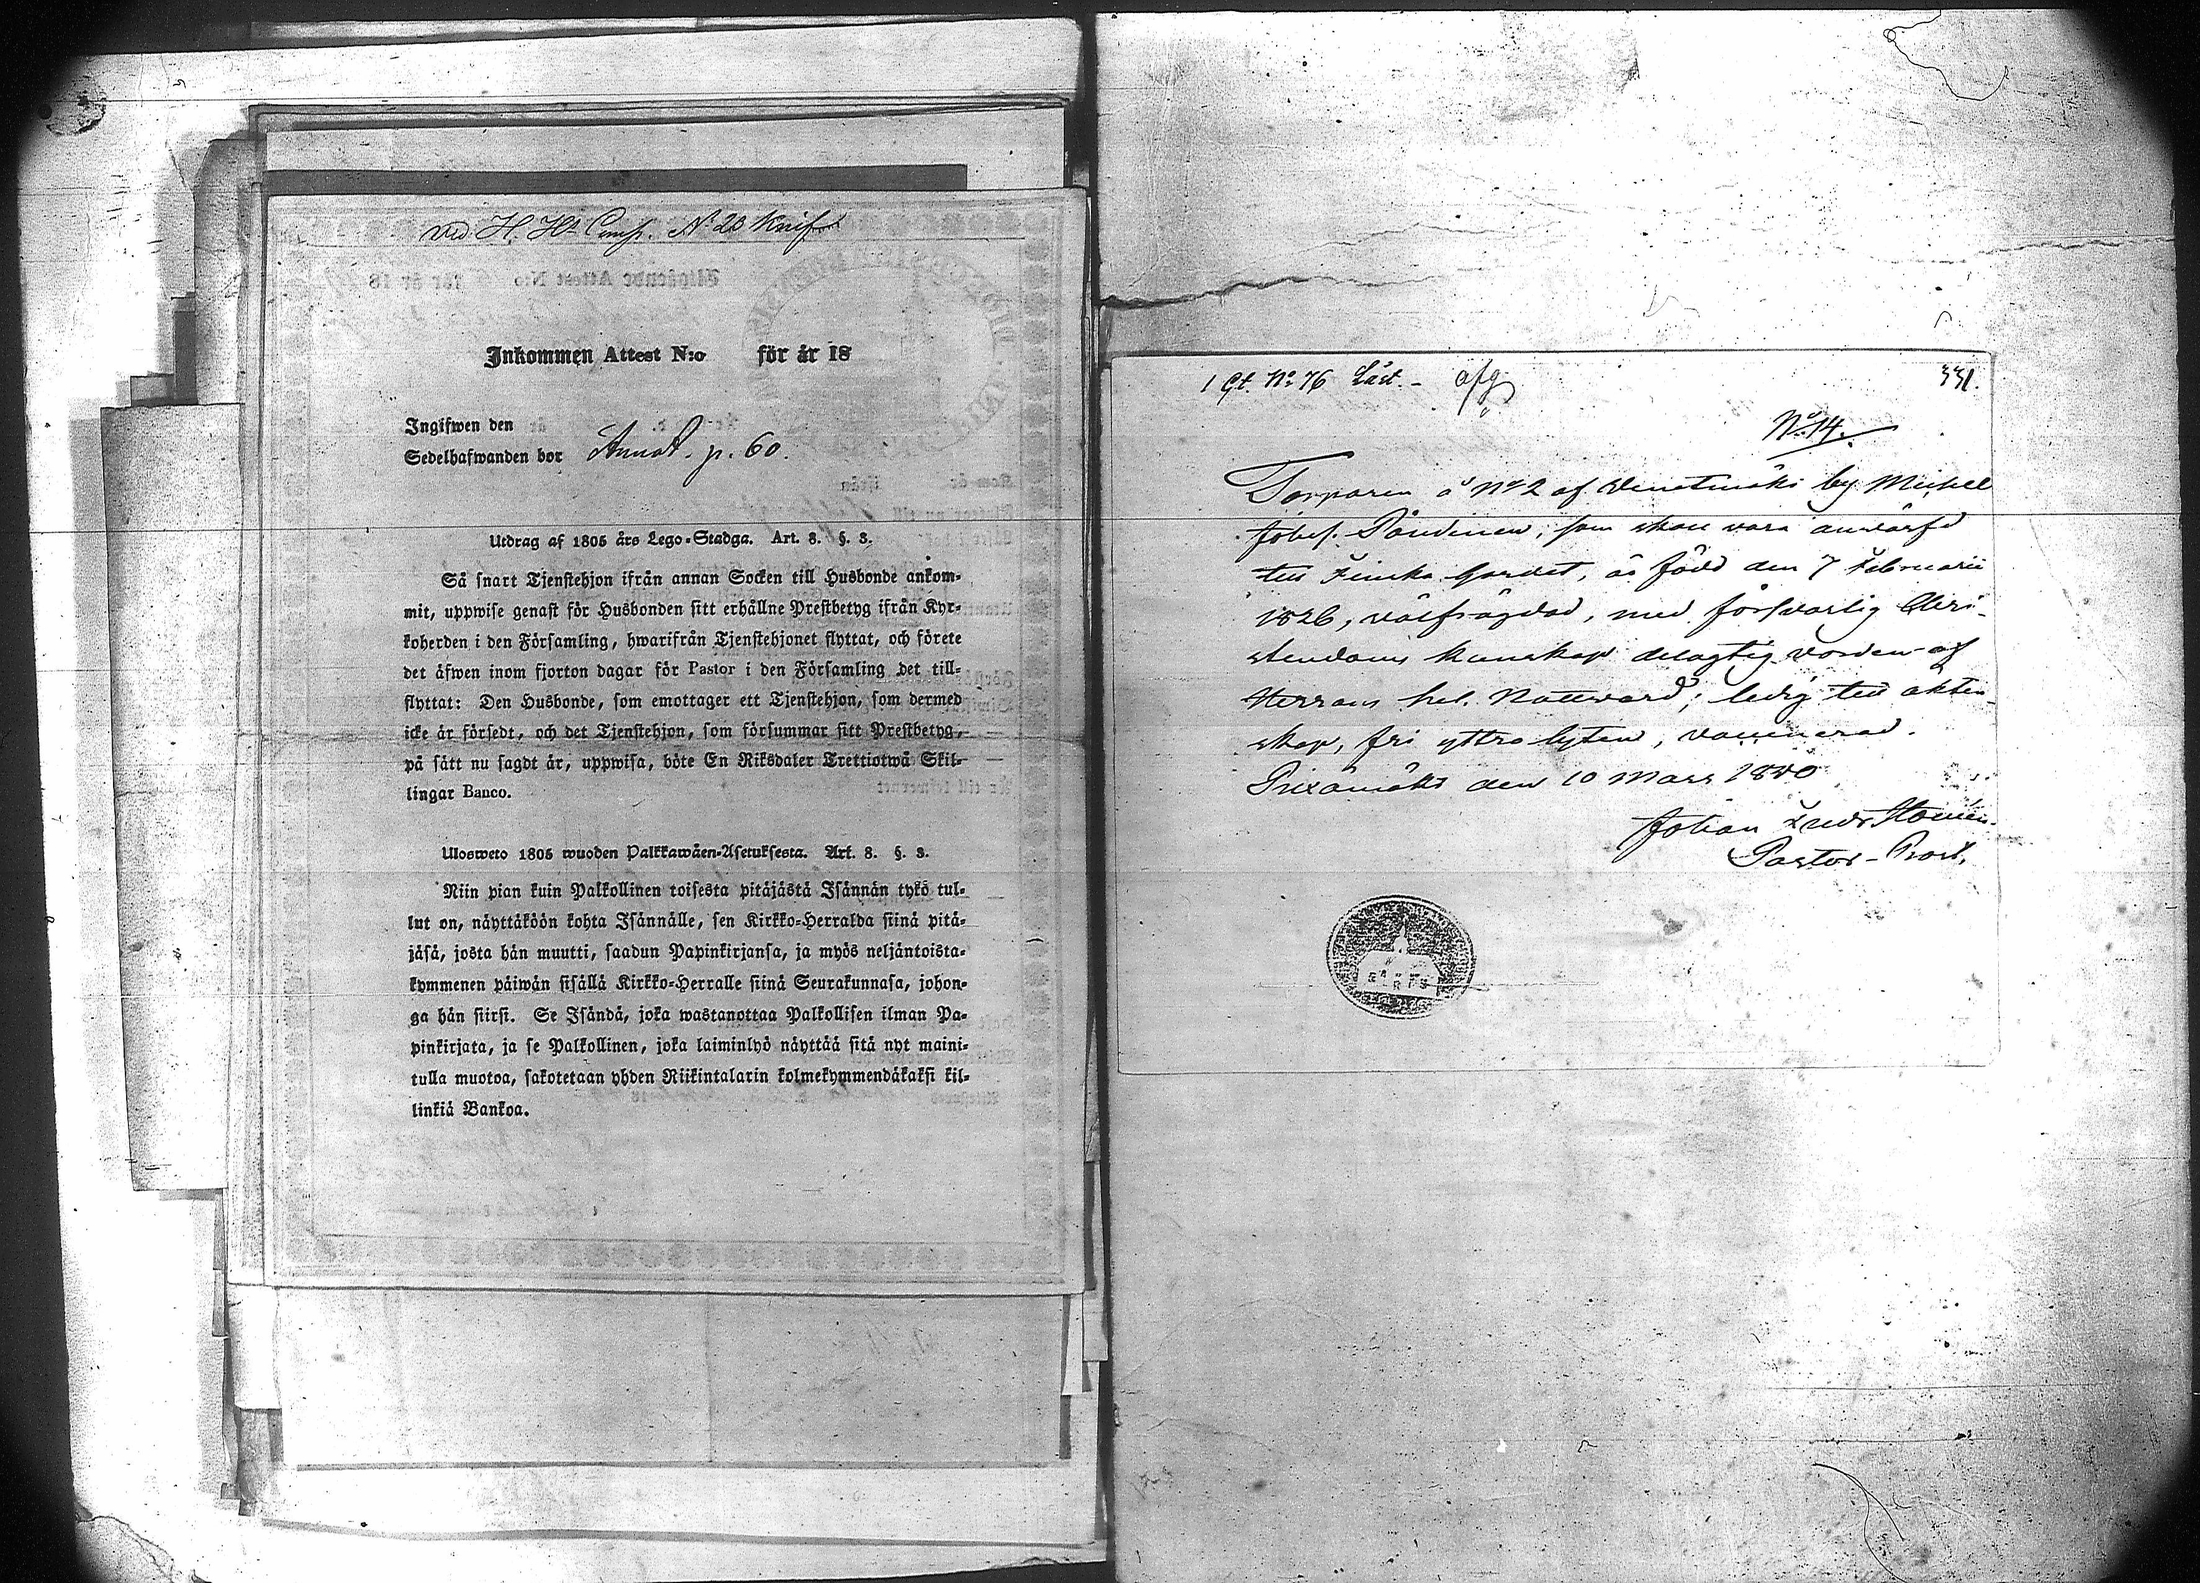 vid H. Hs Comp. No 20 Knif
Inkommen Attest N:o för år 18
Ingifwen den
Sedelhafwanden bor Annot. p. 60.
Utdrag af 1805 års Lego-Stadga. Art. 8. §. 3.
Så snart Tjenstehjon ifrån annan Socken till Husbonde ankom-
mit, uppwise genast för Husbonden sitt erhållne Prestbetyg ifrån Kyr-
koherden i den Församling, hwarifrån Tjenstehjonet flyttat, och förete
det äfwen inom fjorton dagar för Pastor i den Församling det till-
flyttat: Den Husbonde, som emottager ett Tjenstehjon, som dermed
icke är försedt, och det Tjenstehjon, som försummar sitt Prestbetyg,
på sätt nu sagdt är, uppwisa, böte En Riksdaler Trettiotwå Skil-
lingar Banco.
Ulosweto 1805 wuoden Palkkawäen-Asetuksesta. Art. 8. §. 3.
Niin pian kuin Palkollinen toisesta pitäjästä Isännän tykö tul-
lut on, näyttäköön kohta Isännälle, sen Kirkko-Herralda siinä pitä-
jäsä, josta hän muutti, saadun Papinkirjansa, ja myös neljäntoista-
kymmenen päiwän sisällä Kirkko-Herralle siinä Seurakunnasa, johon-
ga hän siirsi. Se Isändä, joka wastanottaa Palkollisen ilman Pa-
pinkirjata, ja se Palkollinen, joka laiminlyö näyttää sitä nyt maini-
tulla muotoa, sakotetaan yhden Riikintalarin kolmekymmendäkaksi kil-
linkiä Bankoa.
1 Qt. No 76 Läst. - afg 331.
No 14.
Torparen å No 2 af Venetmäki by Michel
Johs. Pöndinen, som skall vara antwärfd
till Finska Gardet, är född den 7 Februarii
1826, välfrägdad, med försvarlig Chri-
stendoms kunskap delagtig vorden af
Herrans hel. Nattvard; ledig till äkten-
skap, fri yttra lyten, vaccinerad.
Piexämäki den 10 Mars 1850
Johan
Pastor - Prost.